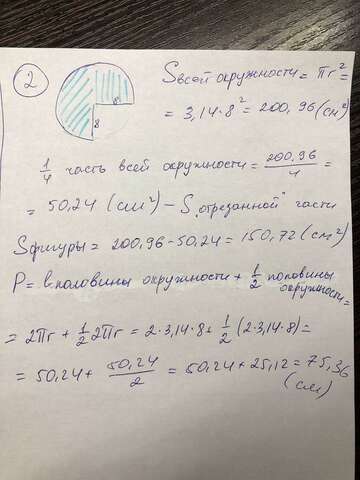 2
8
8
S всей окружности = πr² =
= 3,14 · 8² = 200,96 (см²)
1/4 часть всей окружности = 200,96/4 =
= 50,24 (см²) – S „отрезанной“ части
S фигуры = 200,96 - 50,24 = 150,72 (см²)
P = половины окружности + 1/2 половины окружности =
= 2πr + 1/2 2πr = 2·3,14·8 + 1/2 (2·3,14·8) =
= 50,24 + 50,24/2 = 50,24 + 25,12 = 75,36 (см)